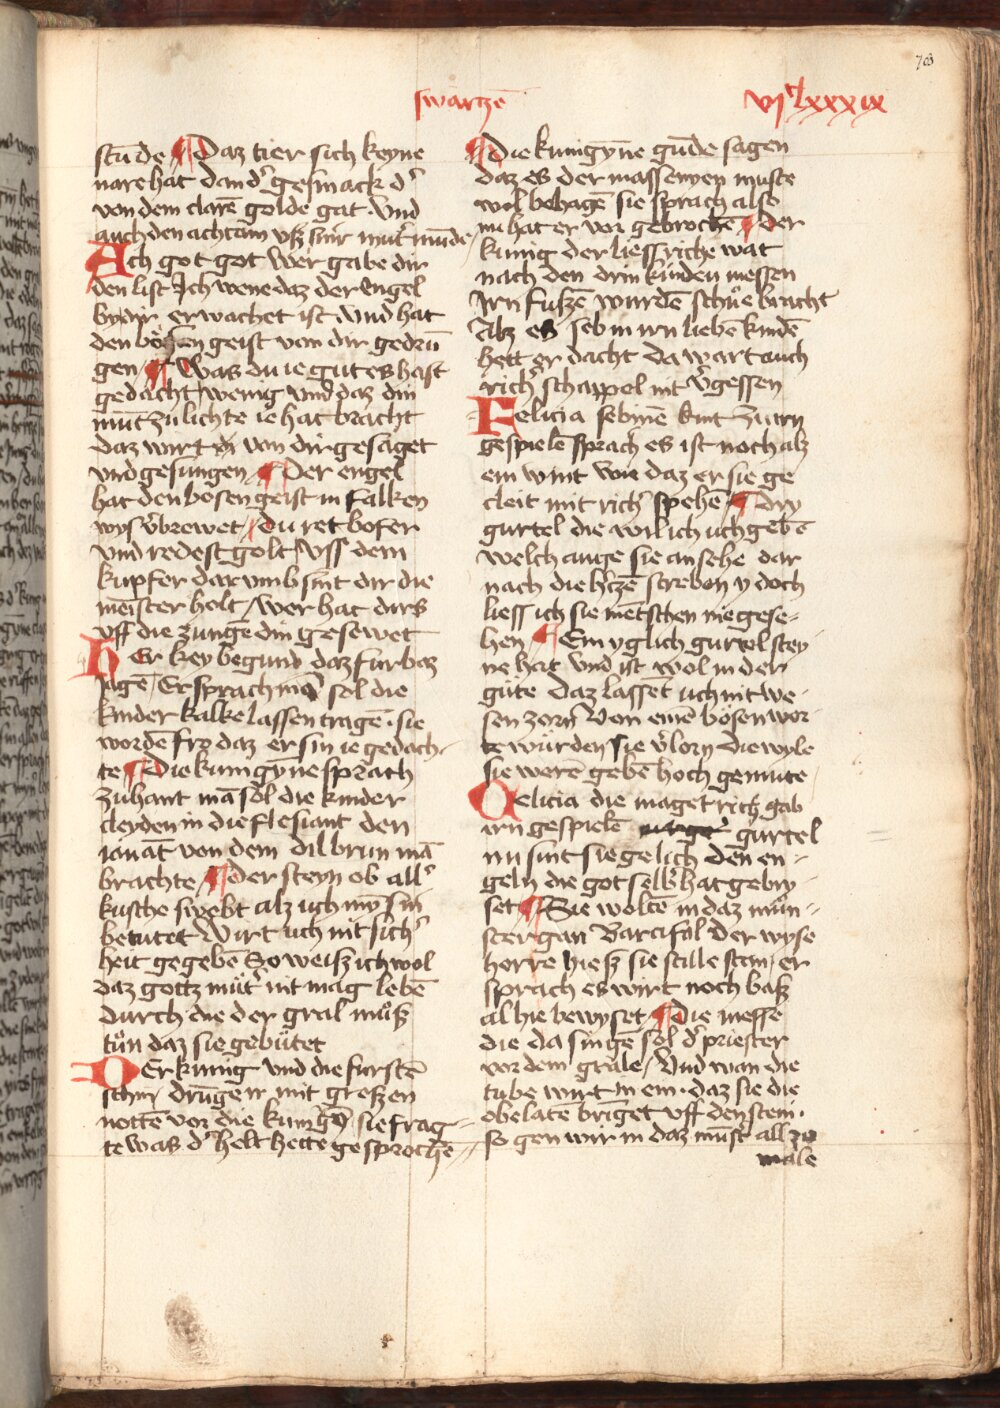 703
swarczē
vjᶜlxxxix
stūde ¶ Daz tier sich keyne
nare hat dan dʼ gesmack dʼ
von dem clarē golde gat · Vnd
auch den achtām vß smʼr mutʼ mūde
Ach got got wer gabe dir
den list Ich wene daz der engel
by dir erwachet ist Vnd hat
den bößen geist von dir gedrū
gen / ¶ Was du ie gutes hast
gedacht / wenig vnd daz din
mūt zu lichte ie hat bracht
daz wirt von dir gesaget
vnd gesungen / ¶ Der engel
hat den bosen geist in falken
wys vʼbrewet / du ret bofer
vnd redest golt / vss dem
kupfer dar vmb sint dir die
meister holt / wer hat dirs
vff die zungē din gesewet
Her key begund daz furbaz
sagē / Er sprach mā sol die
kinder kalke lassen tragē · sie
wordē fro daz er sin ie gedach
te ¶ Die kunigyne sprach
zu hant mā sol die kinder
cleyden in die flesiant den
iouāt von dem dilbrun mā
brachte / ¶ der steyn ob allʼ
kusche swebt alz uch my sin
betutet Wirt uch nit sichʼ
heit gegebē So weiß ich wol
daz gottz mutʼ nit mag lebē
durch die der gral muß
tun daz sie gebutet
Der kunig vnd die furstē
schir drūgē ir mit großen
nottē vor die kunigī sie frag
te was dʼ helt hette gesprochē
¶ die kunigyne gūde sagen
daz es der massenyen muste
wol behagē sie sprach also
nu hat er vor gebrochē ¶ der
kunig der liess riche wat
nach den drin kinden messen
Irn fußē wurdē schue bracht
Alz es seb in irn liebē kindē
hett er dacht da wart auch
richʼ schappel nit vʼgessen
Felicia sebinē kint zu irn
gespielē sprach es ist noch alz
ein wint wie daz er sie ge
cleit mit richʼ spehē ¶ dry
gurtel die wil ich uch gebē
welch auge sie ansehe dar
nach die hʼczē streben y doch
liess ich sie mētschen nie gese
hen ¶ Ein yglich gurtel stey
ne hat vnd ist wol in der
gute daz lassent uch nit we
sen zorn Von einē bösen wor
te würden sie vʼlorn die wyle
sie werē gebē hoch gemute
Felicia die maget richʼ gab
irn gespielē gurtel
nu sint sie gelich den en
geln die got selbʼ hat gebry
set ¶ Sie woltē in daz mūn
ster gan Barcifol der wyse
herre hieß sie stille stan / er
sprach es wirt noch baß
al hie bewyset ¶ die messe
die da singē sol dʼ priester
vor dem grale / Vnd wan die
tube wirt in ein · daz sie die
obelate bringet vff den stein ·
so gen wir in daz mūst all zu
male